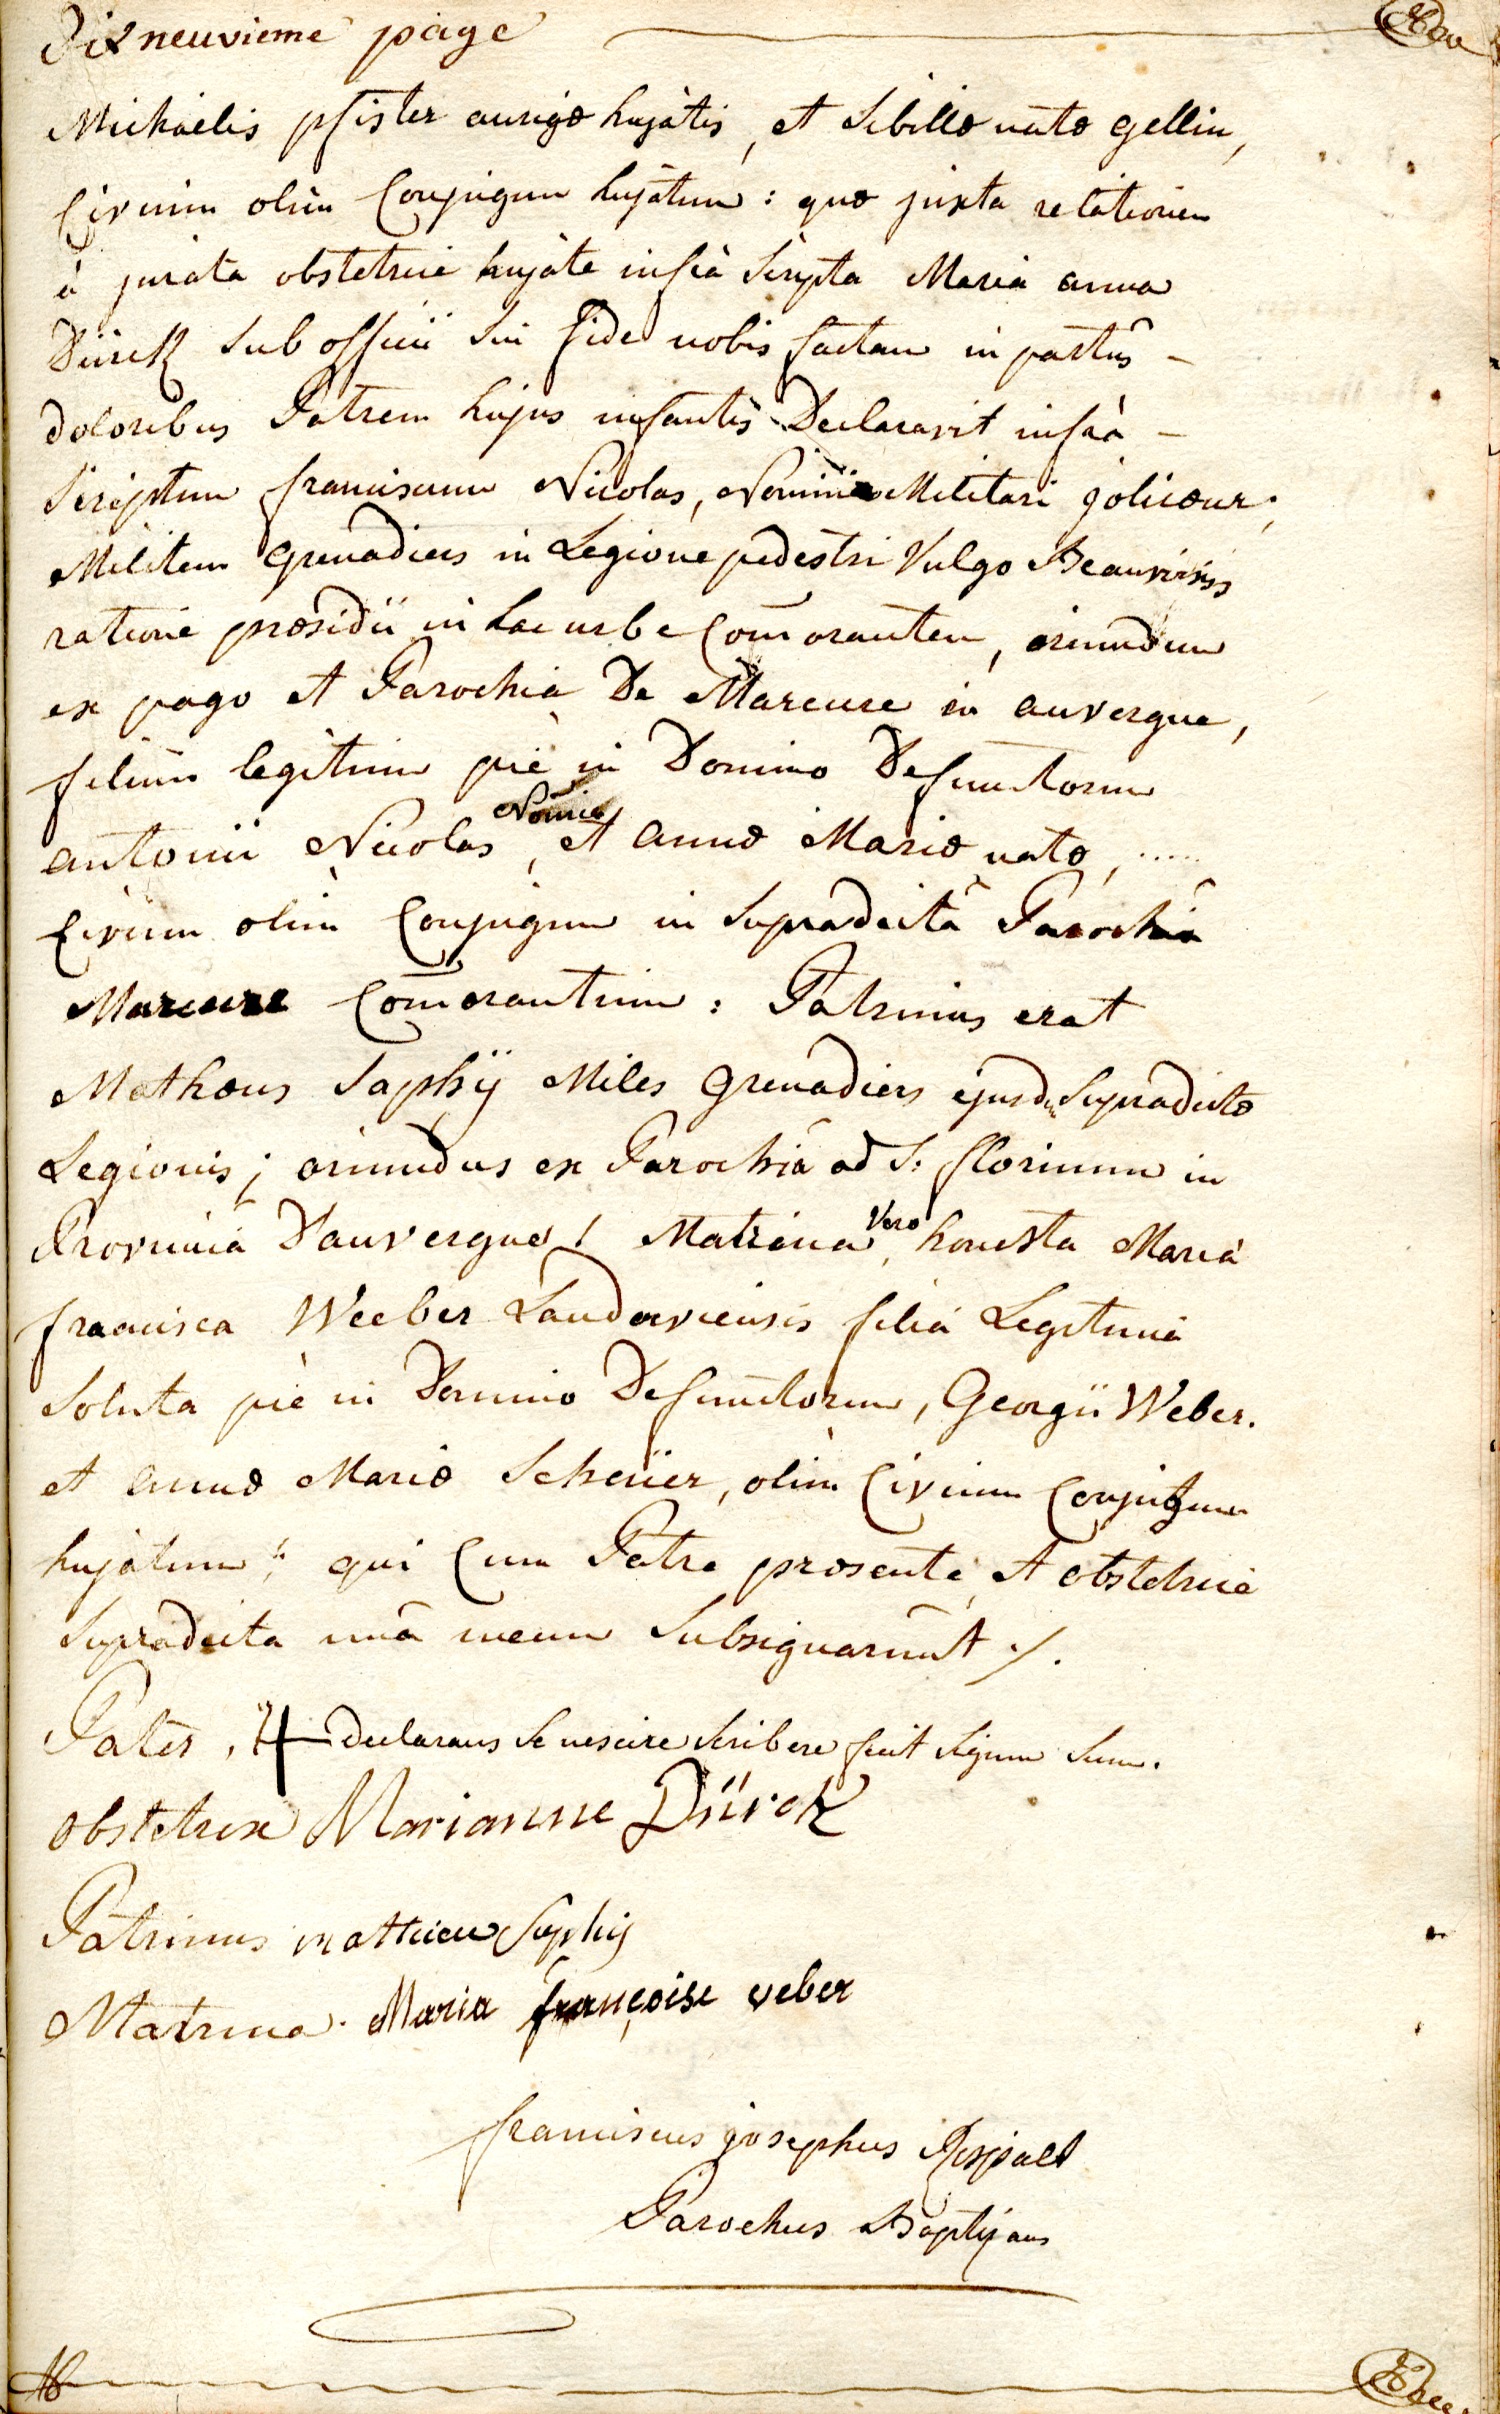 Dix neuvieme page
Michaëlis pfister aurigæ hujàtis, et Sibillæ natæ gellin,
Civium olim Conjugum hujàtum : quæ juxta relationem
à juratà obstetrice hujàte infrà Scripta Maria anna
Dürck sub officii sui fide nobis factam in partûs -
doloribus Patrem hujus infantis Declaravit infrà -
Scriptum franciscum Nicolas, Nomine Militari jolicœur,
Militem Grenadiers in Legione pedestri Vulgo Beauvoisis
ratione præsidii in hac urbe Com̄orantem, oriundum
ex pago et Parochia De Mareuse in auvergne,
filium legitimum piè in Domino Defunctorum
antonii Nicolas Nom̄ie, et annæ Mariæ natæ, .....
Civium olim Conjugum in supradictâ Parochiâ
Mareuse Com̄orantium : Patrinus erat
Mathæus Saphÿ Miles Grenadiers ejusdem Supradictæ
Legionis ; oriundus ex Parochiâ ad S: florinum in
Provincià D'auvergne / Matrina Vero, honesta Maria
francisca Weeber Landaviensis filia Legitima
Soluta piè in Domino Defunctorum, Georgii Weber.
et annæ Mariæ Scheüer, olim Civium Conjugum
hujàtum ; qui Cum Patre præsente, et obstetrice
Supradicta unâ mecum Subsignarunt ./.
Pater, Declarans se nescire scribere fecit signum suum.
obstetrix Marianne Dürck
Patrinus mathieu Saphij
Matrina. Maria françoise veber
franciscus josephus
Parochus Baptizans